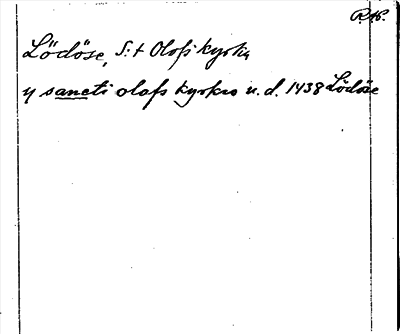 R.K.
Lödöse, S:t Olofs kyrka
y sancti olafs kyrkio u.d. 1438 Lödöse